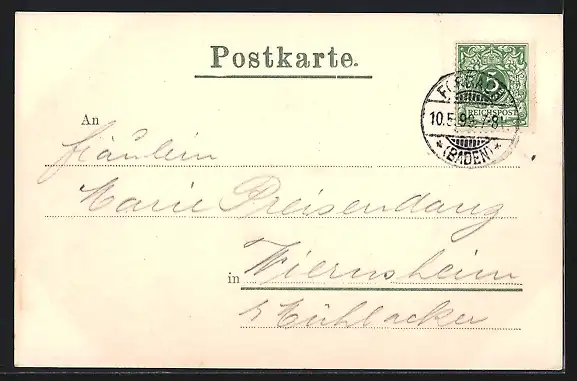 Postkarte.
5
REICHSPOST
FORBACH
10.5.99.7-8
* (BADEN) *
An
Fräulein
Marie Preisendanz
in Wiernsheim
Mühlacker